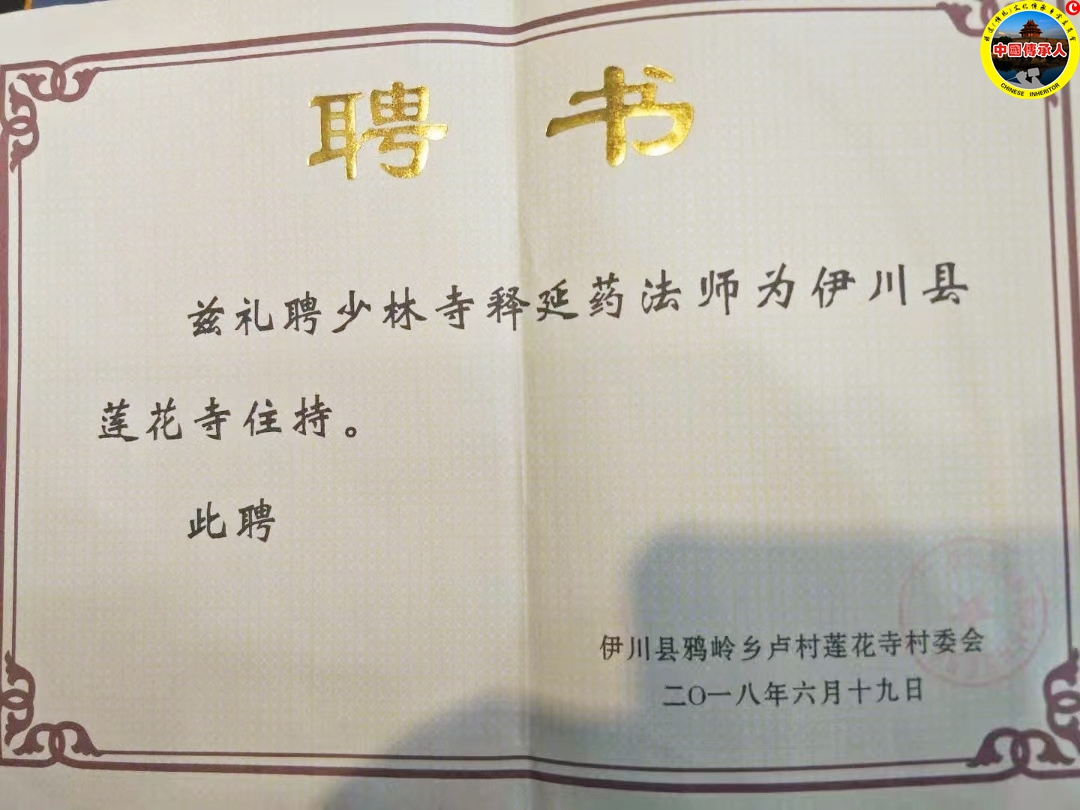 中國傳承人
CHINESE INHERITOR
聘书
兹礼聘少林寺释延药法师为伊川县
莲花寺住持。
此聘
伊川县鸦岭乡卢村莲花寺村委会
二〇一八年六月十九日